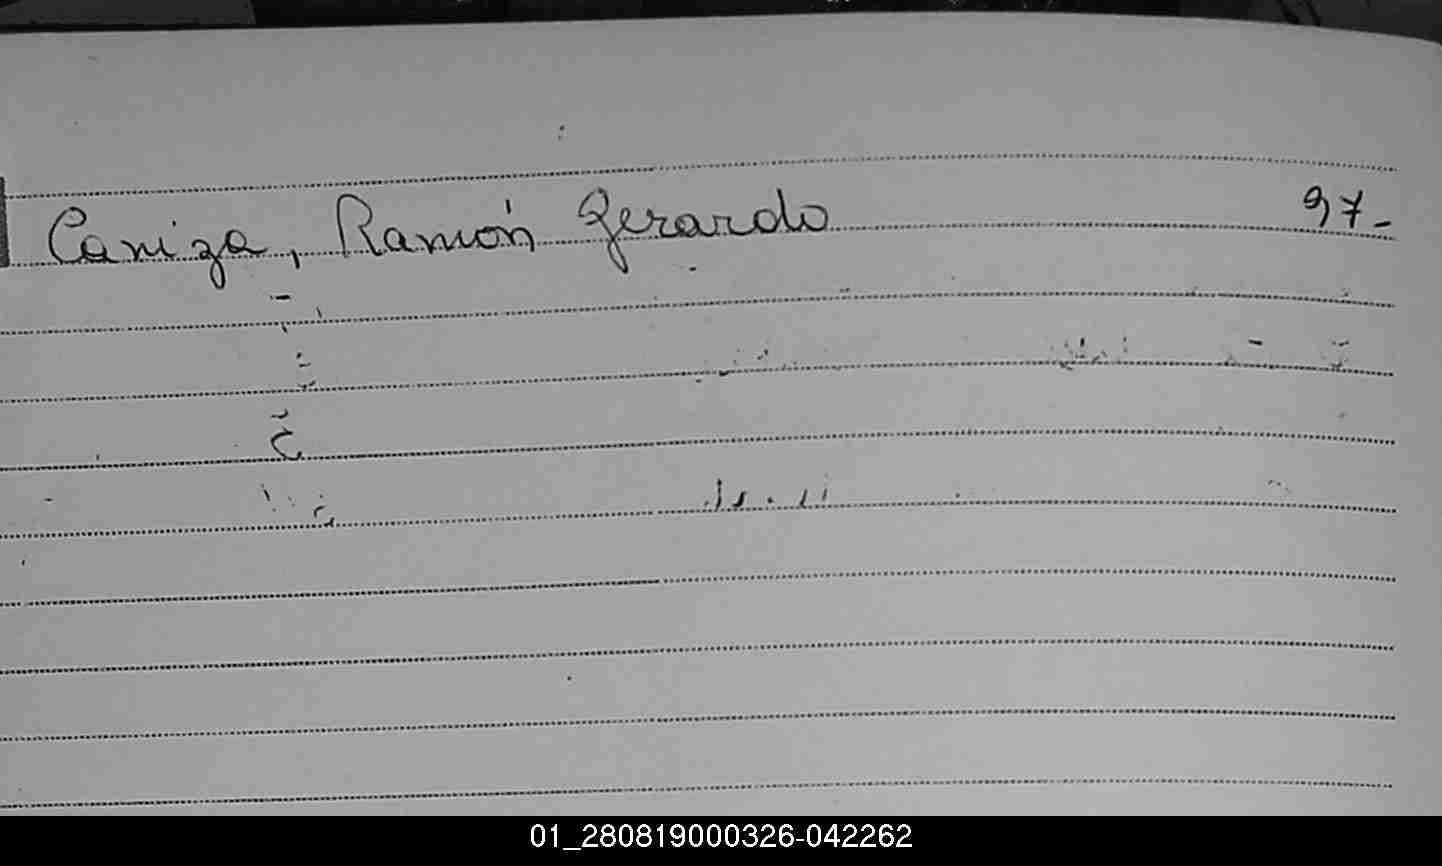 Caniza, Ramón Gerardo 97-
01_280819000326-042262